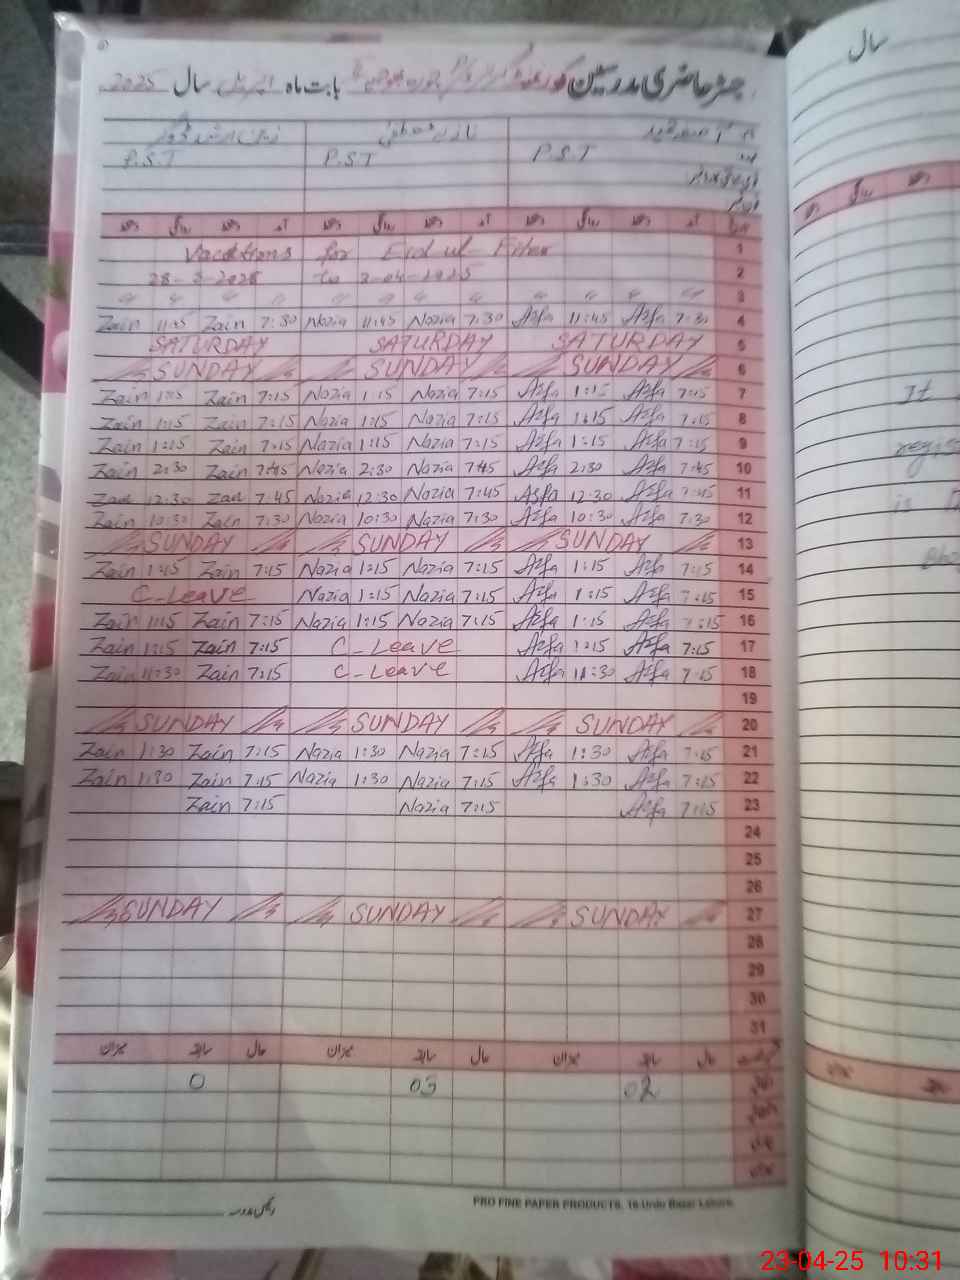 سال
رجسٹر حاضری مدرسین گورنمنٹ بابت ماہ اپریل سال 2025
P.S.T P.S.T P.S.T
Vacations for Eid ul-Fiter 1
28-3-2025 to 3-04-2025 2
" " " " " " " " " " " " 3
Zain 11:45 Zain 7:30 Nazia 11:45 Nazia 7:30 Asfa 11:45 Asfa 7:30 4
SATURDAY SATURDAY SATURDAY 5
SUNDAY SUNDAY SUNDAY 6
Zain 1:15 Zain 7:15 Nazia 1:15 Nazia 7:15 Asfa 1:15 Asfa 7:15 7
Zain 1:15 Zain 7:15 Nazia 1:15 Nazia 7:15 Asfa 1:15 Asfa 7:15 8
Zain 1:15 Zain 7:15 Nazia 1:15 Nazia 7:15 Asfa 1:15 Asfa 7:15 9
Zain 2:30 Zain 7:45 Nazia 2:30 Nazia 7:45 Asfa 2:30 Asfa 7:45 10
Zain 12:30 Zain 7:45 Nazia 12:30 Nazia 7:45 Asfa 12:30 Asfa 7:45 11
Zain 10:30 Zain 7:30 Nazia 10:30 Nazia 7:30 Asfa 10:30 Asfa 7:30 12
SUNDAY SUNDAY SUNDAY 13
Zain 1:15 Zain 7:15 Nazia 1:15 Nazia 7:15 Asfa 1:15 Asfa 7:15 14
C-Leave Nazia 1:15 Nazia 7:15 Asfa 1:15 Asfa 7:15 15
Zain 1:15 Zain 7:15 Nazia 1:15 Nazia 7:15 Asfa 1:15 Asfa 7:15 16
Zain 1:15 Zain 7:15 C-Leave Asfa 1:15 Asfa 7:15 17
Zain 11:30 Zain 7:15 C-Leave Asfa 11:30 Asfa 7:15 18
19
SUNDAY SUNDAY SUNDAY 20
Zain 1:30 Zain 7:15 Nazia 1:30 Nazia 7:15 Asfa 1:30 Asfa 7:15 21
Zain 1:30 Zain 7:15 Nazia 1:30 Nazia 7:15 Asfa 1:30 Asfa 7:15 22
Zain 7:15 Nazia 7:15 Asfa 7:15 23
24
25
26
SUNDAY SUNDAY SUNDAY 27
28
29
30
31
میزان سابقہ حال میزان سابقہ حال میزان سابقہ حال
0 03 02
PRO FINE PAPER PRODUCTS. 16-Urdu Bazar Lahore.
23-04-25 10:31